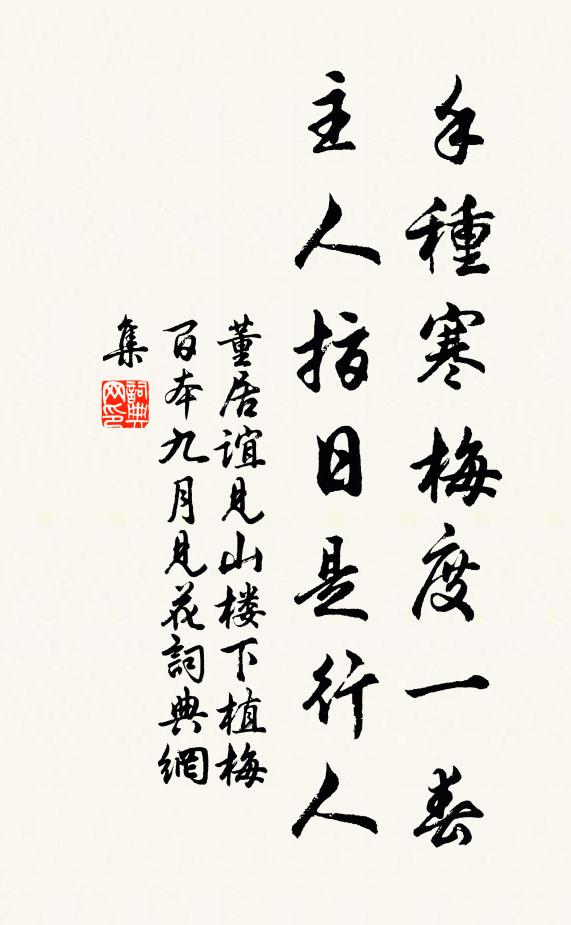 手種寒梅度一春
主人指日是行人
董居誼見山楼下植梅
百本九月見花詞典網
集
詞典
网印